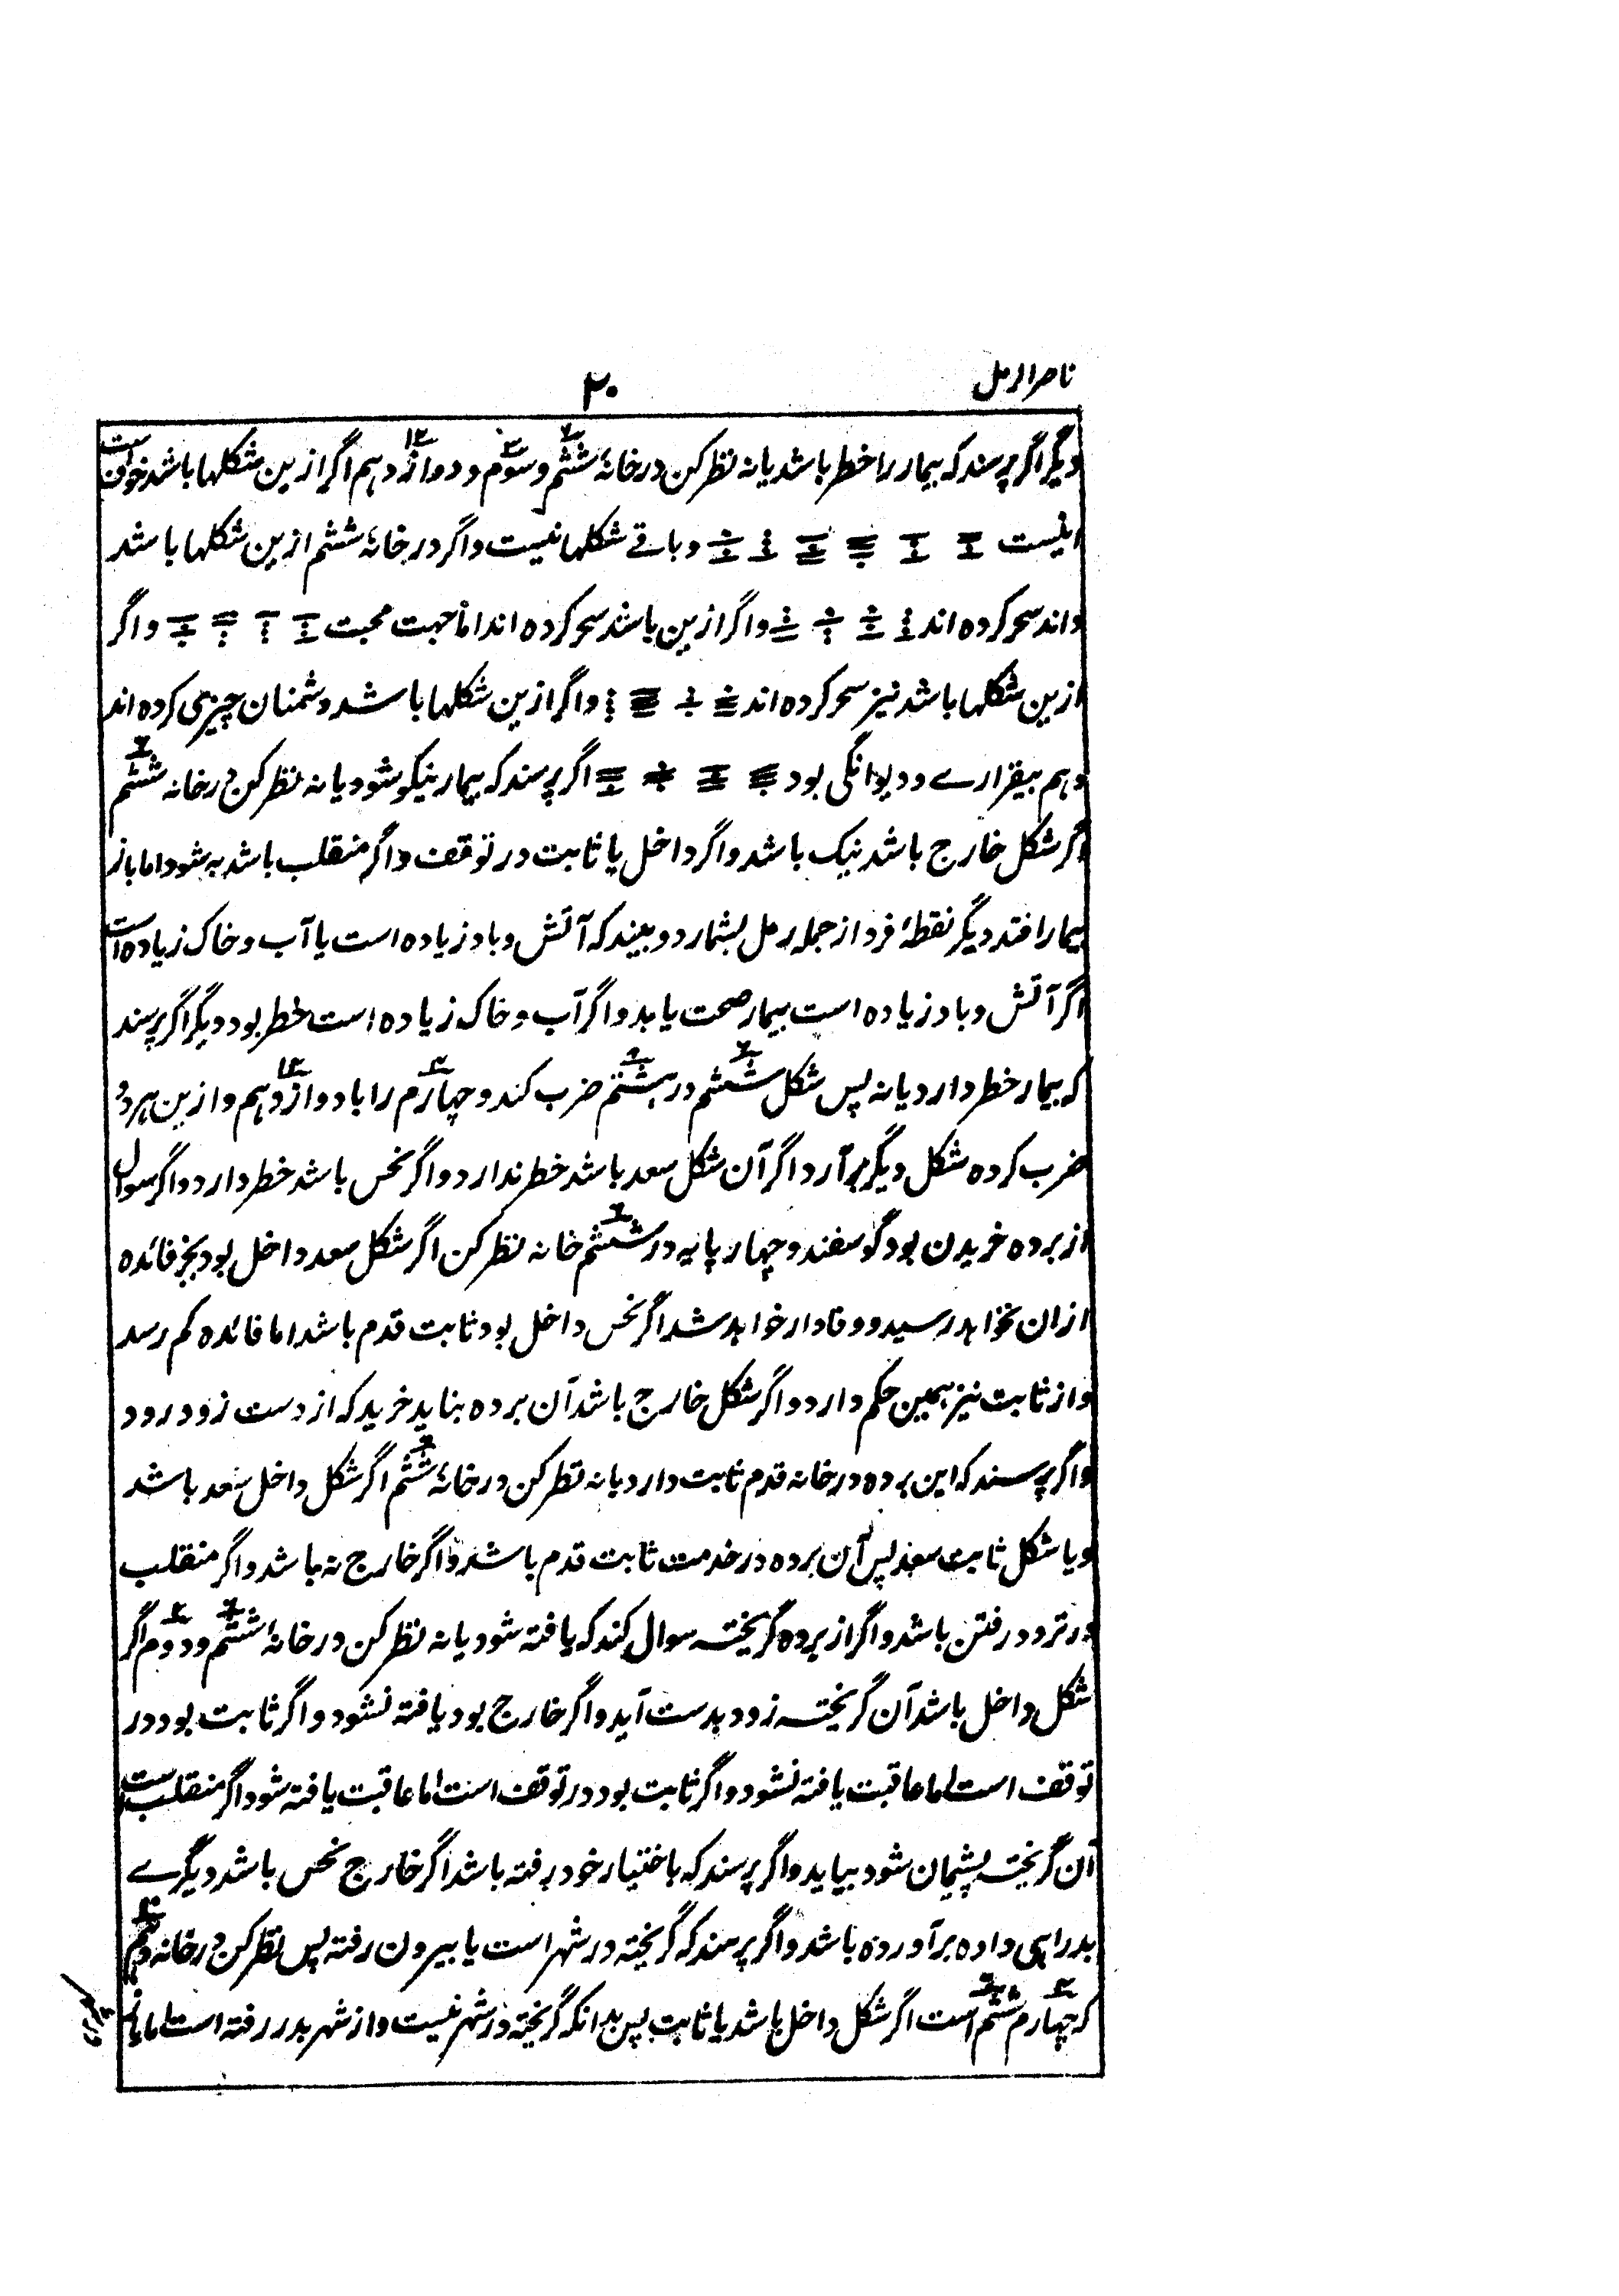 ناصر الرمل
۲۰
دیگر اگر پرسند که بیمار را خطر باشد یا نه نظر کن در خانهٔ ششم و سوم و دوازدهم اگر ازین شکلها باشد خوف است
اینست و باقے شکلها نیست و اگر در خانهٔ ششم ازین شکلها باشد
داند سحر کرده اند و اگر ازین باشد سحر کرده اند اما جهت محبت و اگر
ازین شکلها باشد نیز سحر کرده اند و اگر ازین شکلها باشد دشمنان چیزی کرده اند
و هم بیقرارے و دیوانگی بود اگر پرسند که بیمار نیکو شود یا نه نظر کن در خانه ششم
اگر شکل خارج باشد نیک باشد و اگر داخل یا ثابت در توقف و اگر منقلب باشد به شود اما باز
بیمار افتد دیگر نقطهٔ فرد از جمله رمل بشمارد و بیند که آتش و باد زیاده است یا آب و خاک زیاده است
اگر آتش و باد زیاده است بیمار صحت یابد و اگر آب و خاک زیاده است خطر بود دیگر اگر پرسند
که بیمار خطر دارد یا نه پس شکل ششم در هشتم ضرب کند و چهارم را با دوازدهم و ازین هر دو
ضرب کرده شکل دیگر برآرد اگر آن شکل سعد باشد خطر ندارد و اگر نحس باشد خطر دارد و اگر سوال
از برده خریدن بود گوسفند و چهارپایه در ششم خانه نظر کن اگر شکل سعد داخل بود بجز فائده
ازان نخواهد رسید و وفادار خواهد شد اگر نحس داخل بود ثابت قدم باشد اما فائده کم رسد
و از ثابت نیز همین حکم دارد و اگر شکل خارج باشد آن برده بناید خرید که از دست زود رود
و اگر پرسند که این برده در خانه قدم ثابت دارد یا نه نظر کن در خانهٔ ششم اگر شکل داخل سعد باشد
و یا شکل ثابت سعد پس آن برده در خدمت ثابت قدم باشد و اگر خارج نه باشد و اگر منقلب
در تردد رفتن باشد و اگر از برده گریخته سوال کند که یافته شود یا نه نظر کن در خانهٔ ششم و دوم اگر
شکل داخل باشد آن گریخته زود بدست آید و اگر خارج بود یافته نشود و اگر ثابت بود در
توقف است اما عاقبت یافته نشود و اگر ثابت بود در توقف است اما عاقبت یافته شود اگر منقلب است
آن گریخته پشیمان شود بیاید و اگر پرسند که باختیار خود رفته باشد اگر خارج نحس باشد دیگرے
بدراهی داده برآورده باشد و اگر پرسند که گریخته در شهر است یا بیرون رفته پس نظر کن در خانه
که چهارم ششم است اگر شکل داخل باشد یا ثابت پس بدانکه گریخته در شهر نیست و از شهر بدر رفته است اما